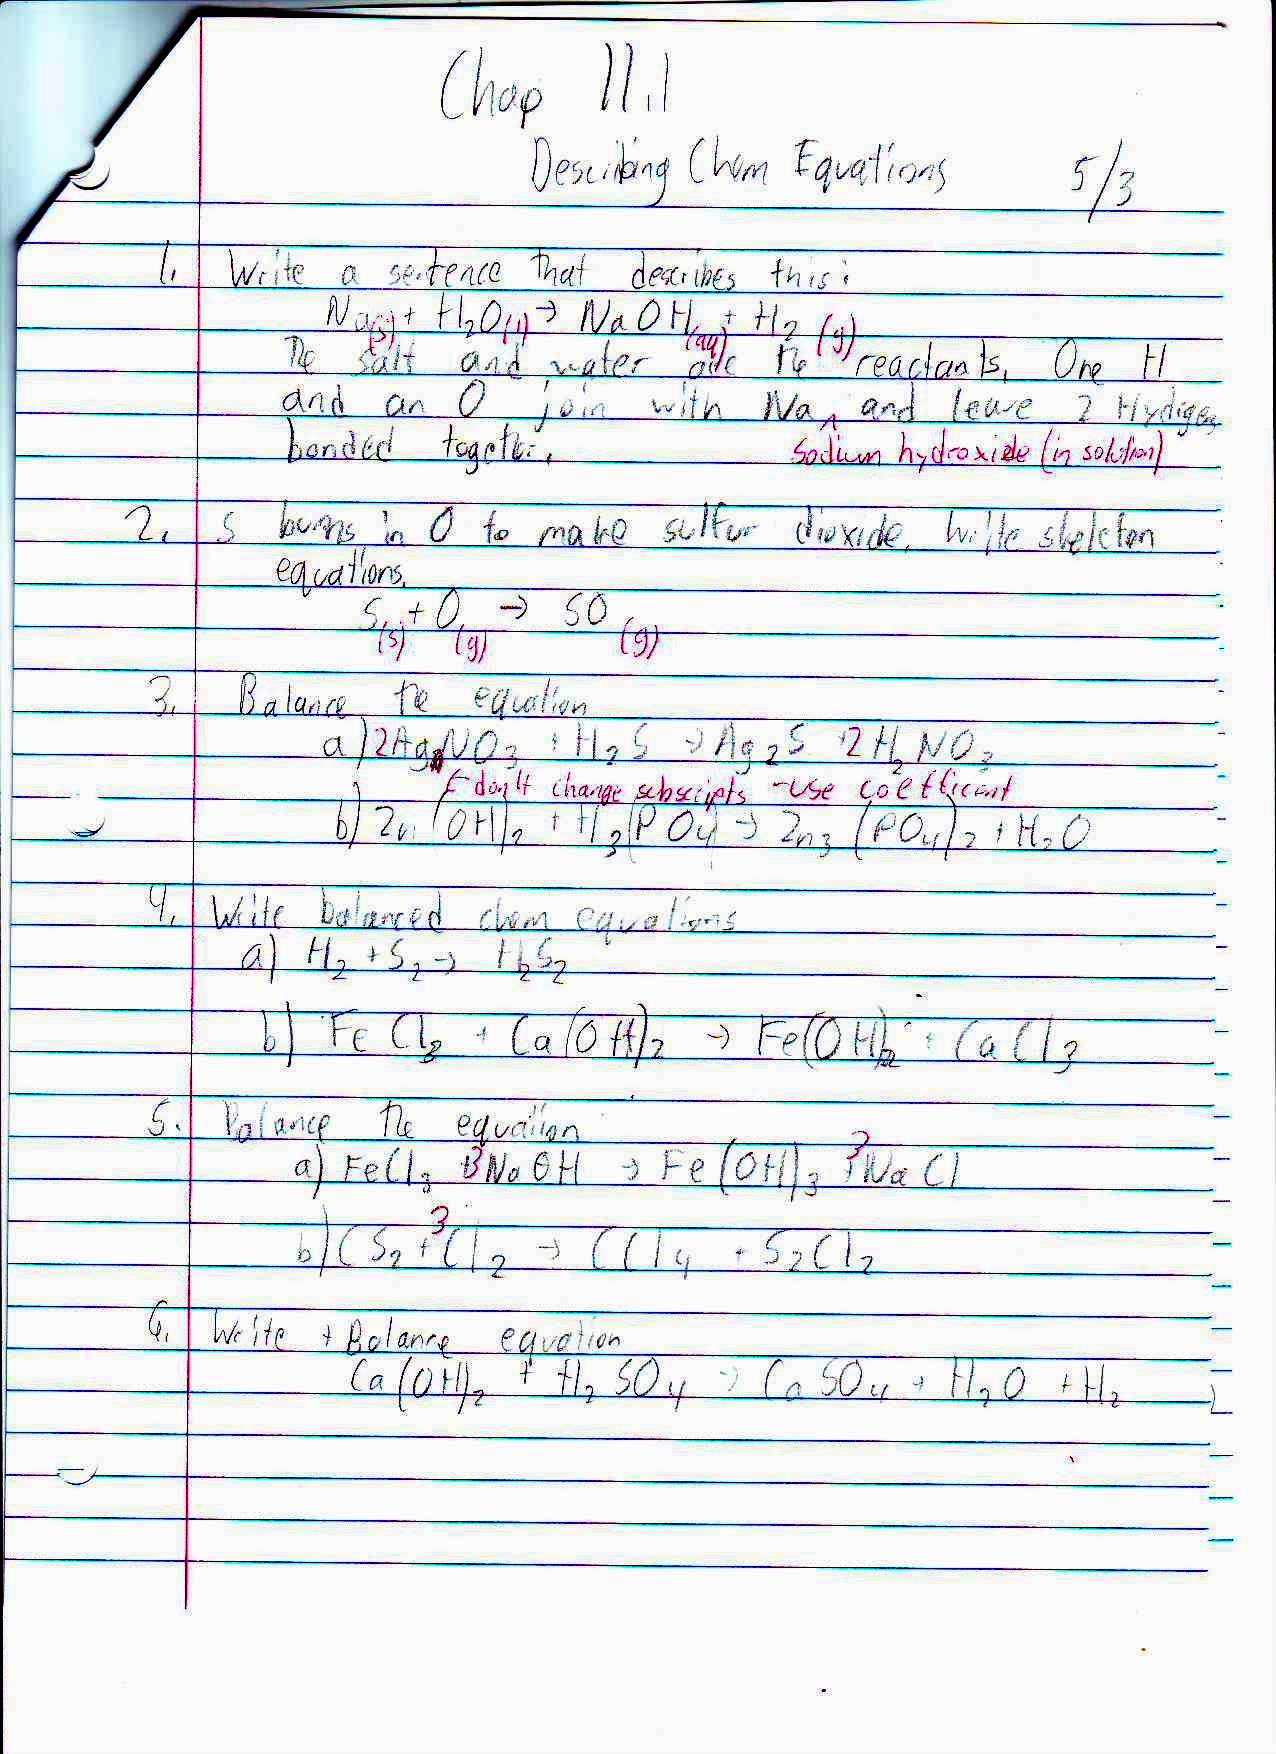 Chap 11.1
Describing Chem Equations 5/3
1. Write a sentence that describes this:
Na(s) + H2O(l) → NaOH(aq) + H2 (g)
The salt and water are the reactants. One H
and an O join with Na ^ and leave 2 Hydigen
bonded together.
sodium hydroxide (in solution)
2. S burns in O to make sulfur dioxide. Write skeleton
equations.
S(s) + O(g) → SO (g)
3. Balance the equation
a) 2AgNO3 + H2S → Ag2S + 2H2NO3
← don't change subscripts - use coefficient
b) Zn(OH)2 + H3(PO4 → Zn3(PO4)2 + H2O
4. Write balanced chem equations
a) H2 + S2 → H2S2
b) FeCl3 + Ca(OH)2 → Fe(OH)2 + CaCl3
5. Balance the equation
a) FeCl3 + 3NaOH → Fe(OH)3 + 3NaCl
b) CS2 + 3Cl2 → CCl4 + S2Cl2
6. Write + Balance equation
Ca(OH)2 + H2SO4 → CaSO4 + H2O + H2